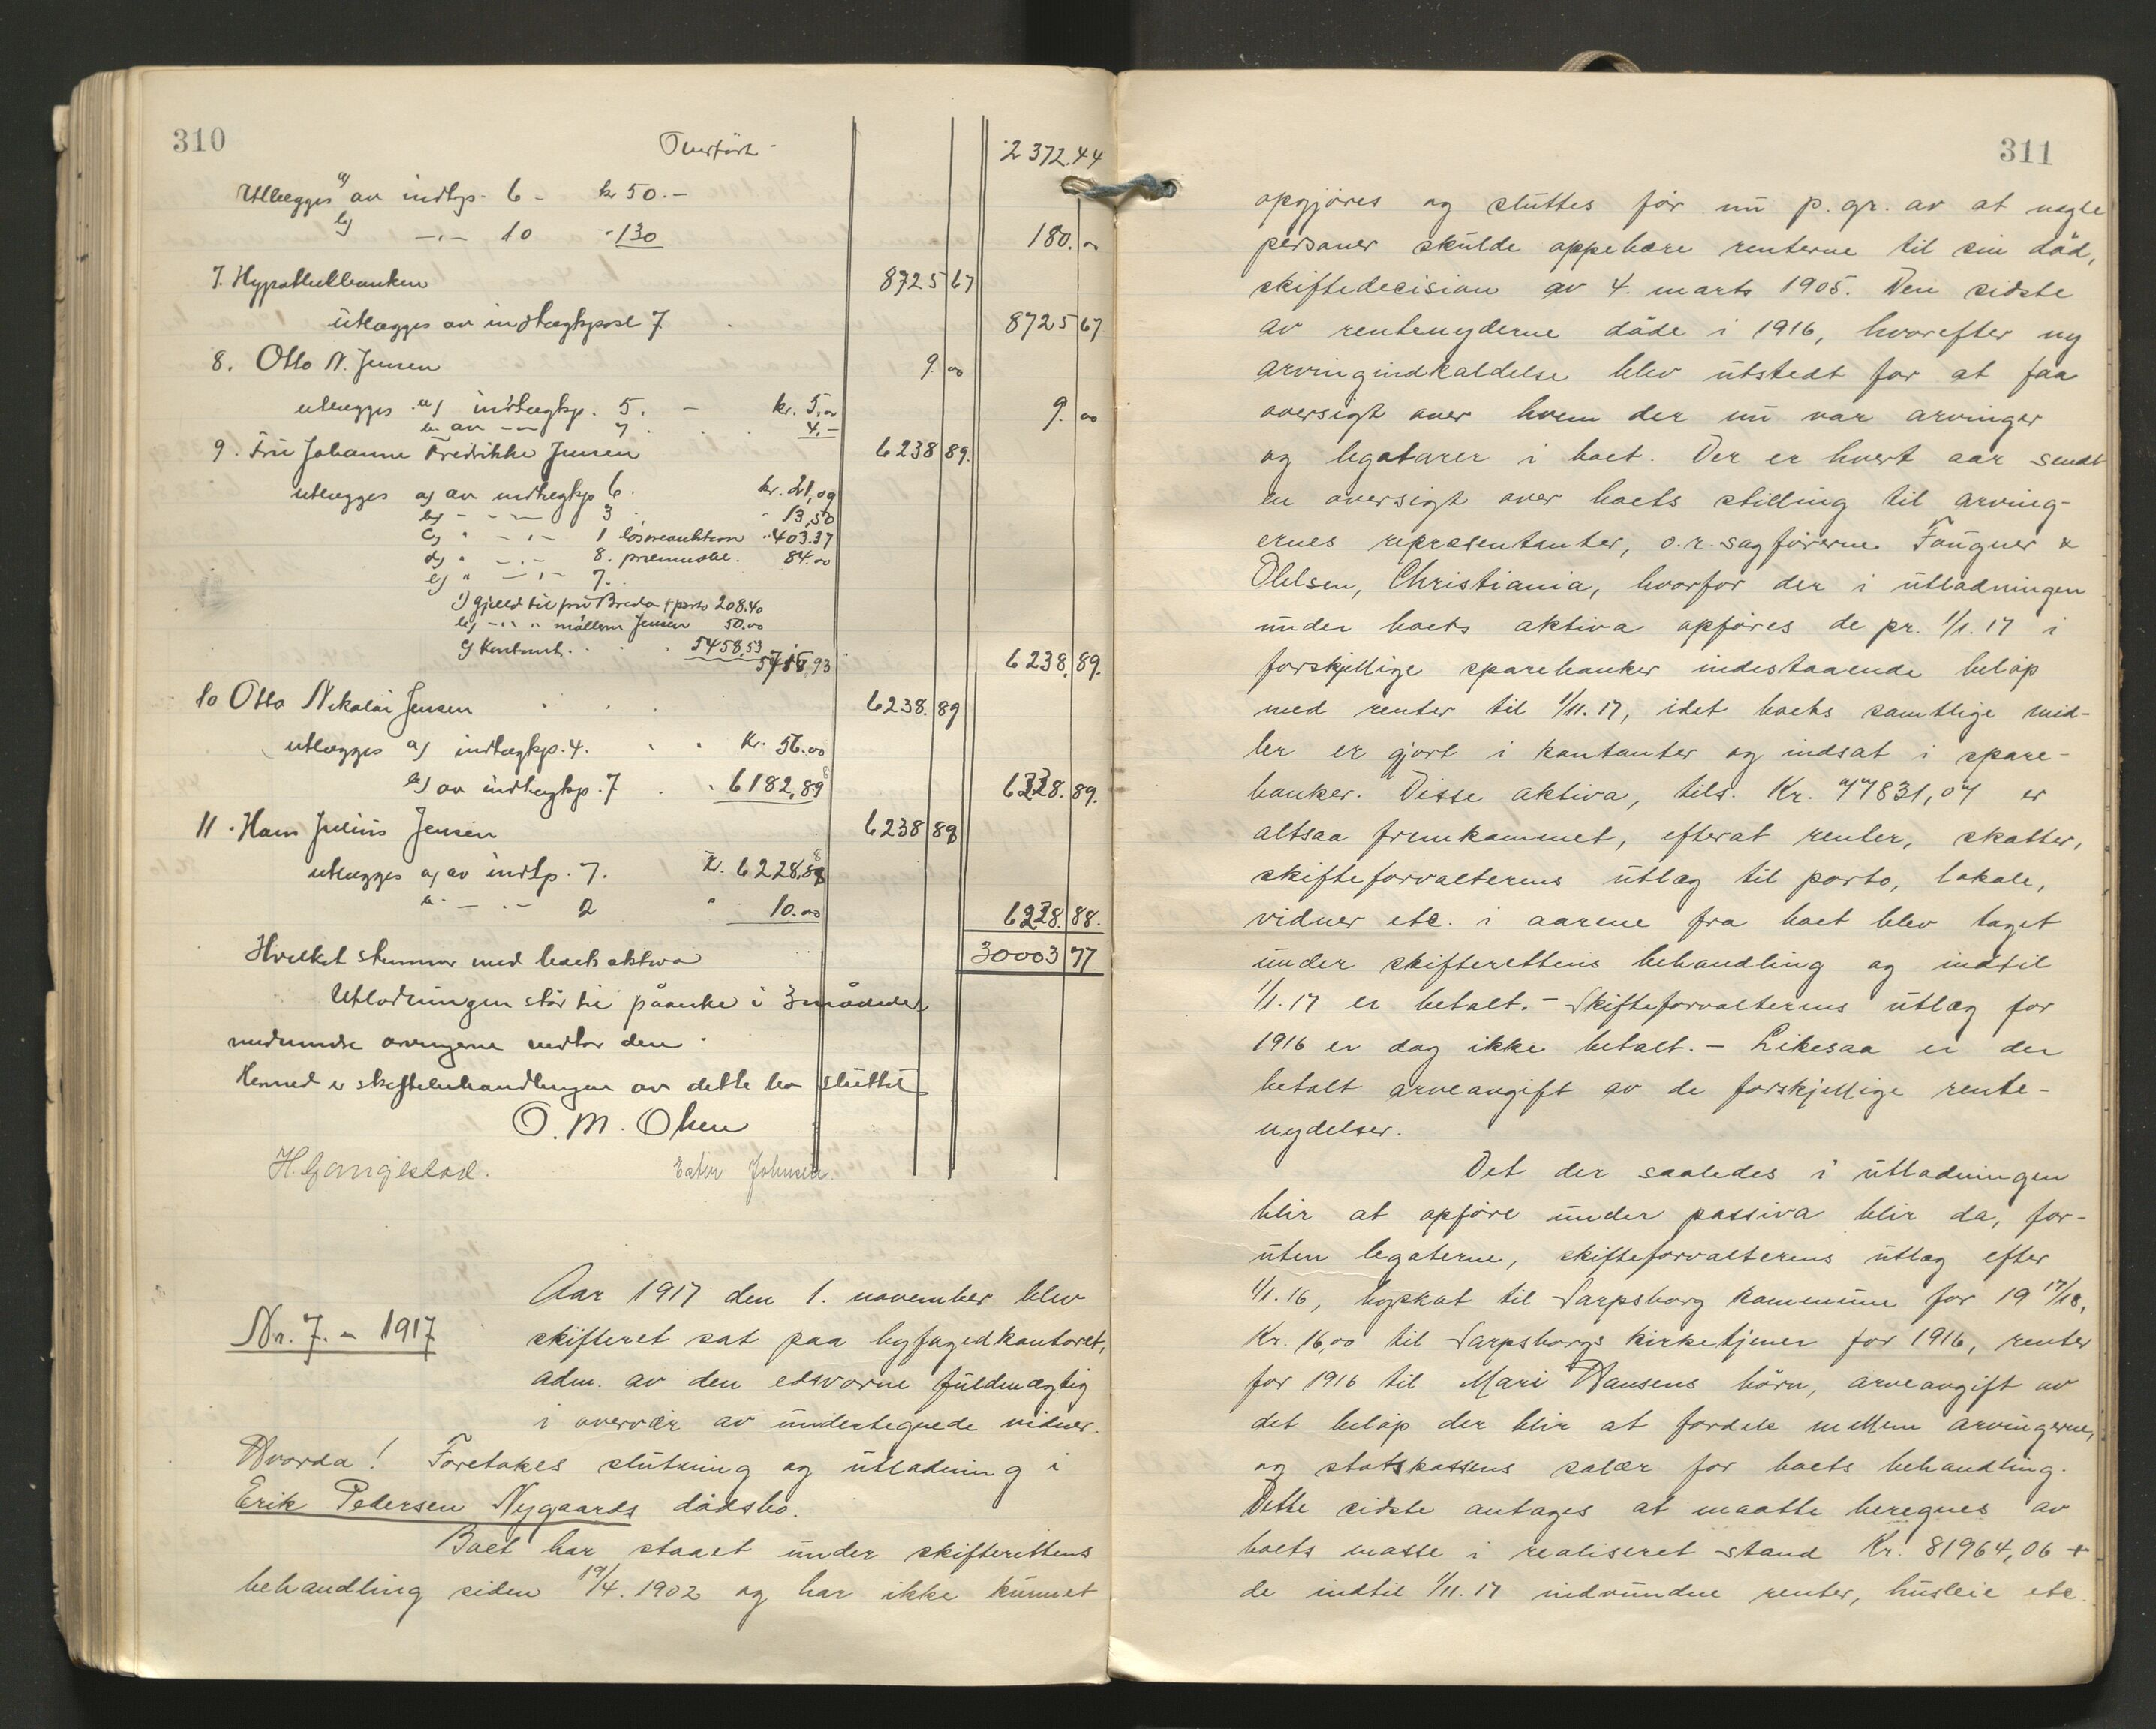 310
Overført - 2372.44
Utlægges a) av indtp. 6 - kr 50.-
b) -"- 10 " 130 180.00
7. Hypothekbanken 8725 67
utlægges av indtægtspost 7 8725 67
8. Otto N. Jensen 9.00
utlægges a) indtægtp. 5. - kr. 5,00 9.00
b. av -"- 7 4.-
9. Fru Johanne Fredrikke Jensen 6238 89.
utlægges a) av indtægtp 6. kr. 21,09
b) - - - 3 " 13,50
c) " - " - 1 løsøreauktion " 403.37
d) " - " - 8. 84.00
e) " - " - 7.
1) Gjæld til fru Breda + porto 208.40
b) - " " møllern Jensen 50.00
c) Kontant. 5458,53
93 6238.89.
10 Otto Nikolai Jensen 6238.89
utlægges a) indtægtp. 4. " " Kr. 56.00
b) av indtægtp. 7 " 6182,89 6238.89.
11. Hans Julius Jensen 6238 88
utlægges a) av indtp. 7. Kr. 6228,88
b. - " - 2 " 10.00 6238.88.
Hvilket stemmer med boets aktiva 30003 77
Utlodningen står til påanke i 3 måneder
medmindre arvingerne vedtar den.
Hermed er skiftebehandlingen av dette bo sluttet
O. M. Olsen
H. Gangestad. Ester Johnsen.
Nr. 7. - 1917
Aar 1917 den 1. november blev
skifteret sat paa byfogedkontoret,
adm. av den edsvorne fuldmægtig
i overvær av undertegnede vidner.
Hvorda! Foretokes slutning og utlodning i
Erik Pedersen Nygaards dødsbo.
Boet har staaet under skifterettens
behandling siden 19/4. 1902 og har ikke kunnet
311
opgjøres og sluttes før nu p. gr. av at nogle
personer skulde oppebære renterne til sin død,
skiftedecision av 4. marts 1905. Den sidste
av rentenyderne døde i 1916, hvorefter ny
arvingindkaldelse blev utstedt for at faa
oversigt over hvem der nu var arvinger
og legatarer i boet. Der er hvert aar sendt
en oversigt over boets stilling til arving-
ernes repræsentanter, o.r.sagførerne Fougner &
Ohlsen, Christiania, hvorfor der i utlodningen
under boets aktiva opføres de pr. 1/1.17 i
forskjellige sparebanker indestaaende beløp
med renter til 1/11.17, idet boets samtlige mid-
ler er gjort i kontanter og indsat i spare-
banker. Disse aktiva, tils. Kr. 77831,07 er
altsaa fremkommet, efterat renter, skatter,
skifteforvalterens utlæg til porto, lokale,
vidner etc. i aarene fra boet blev taget
under skifterettens behandling og indtil
1/1.17 er betalt. - Skifteforvalterens utlæg for
1916 er dog ikke betalt. - Likesaa er der
betalt arveavgift av de forskjellige rente-
nydelser.
Det der saaledes i utlodningen
blir at opføre under passiva blir da, for-
uten legaterne, skifteforvalterens utlæg efter
1/1.16, byskat til Sarpsborg kommune for 19 17/18,
Kr. 16,00 til Sarpsborgs kirketjener for 1916, renter
for 1916 til Mari Hansens børn, arveavgift av
det beløp der blir at fordele mellem arvingerne,
og statskassens salær for boets behandling.
Dette sidste antages at maatte beregnes av
boets masse i realiseret stand Kr. 81964,06 +
de indtil 1/11.17 indvundne renter, husleie etc.